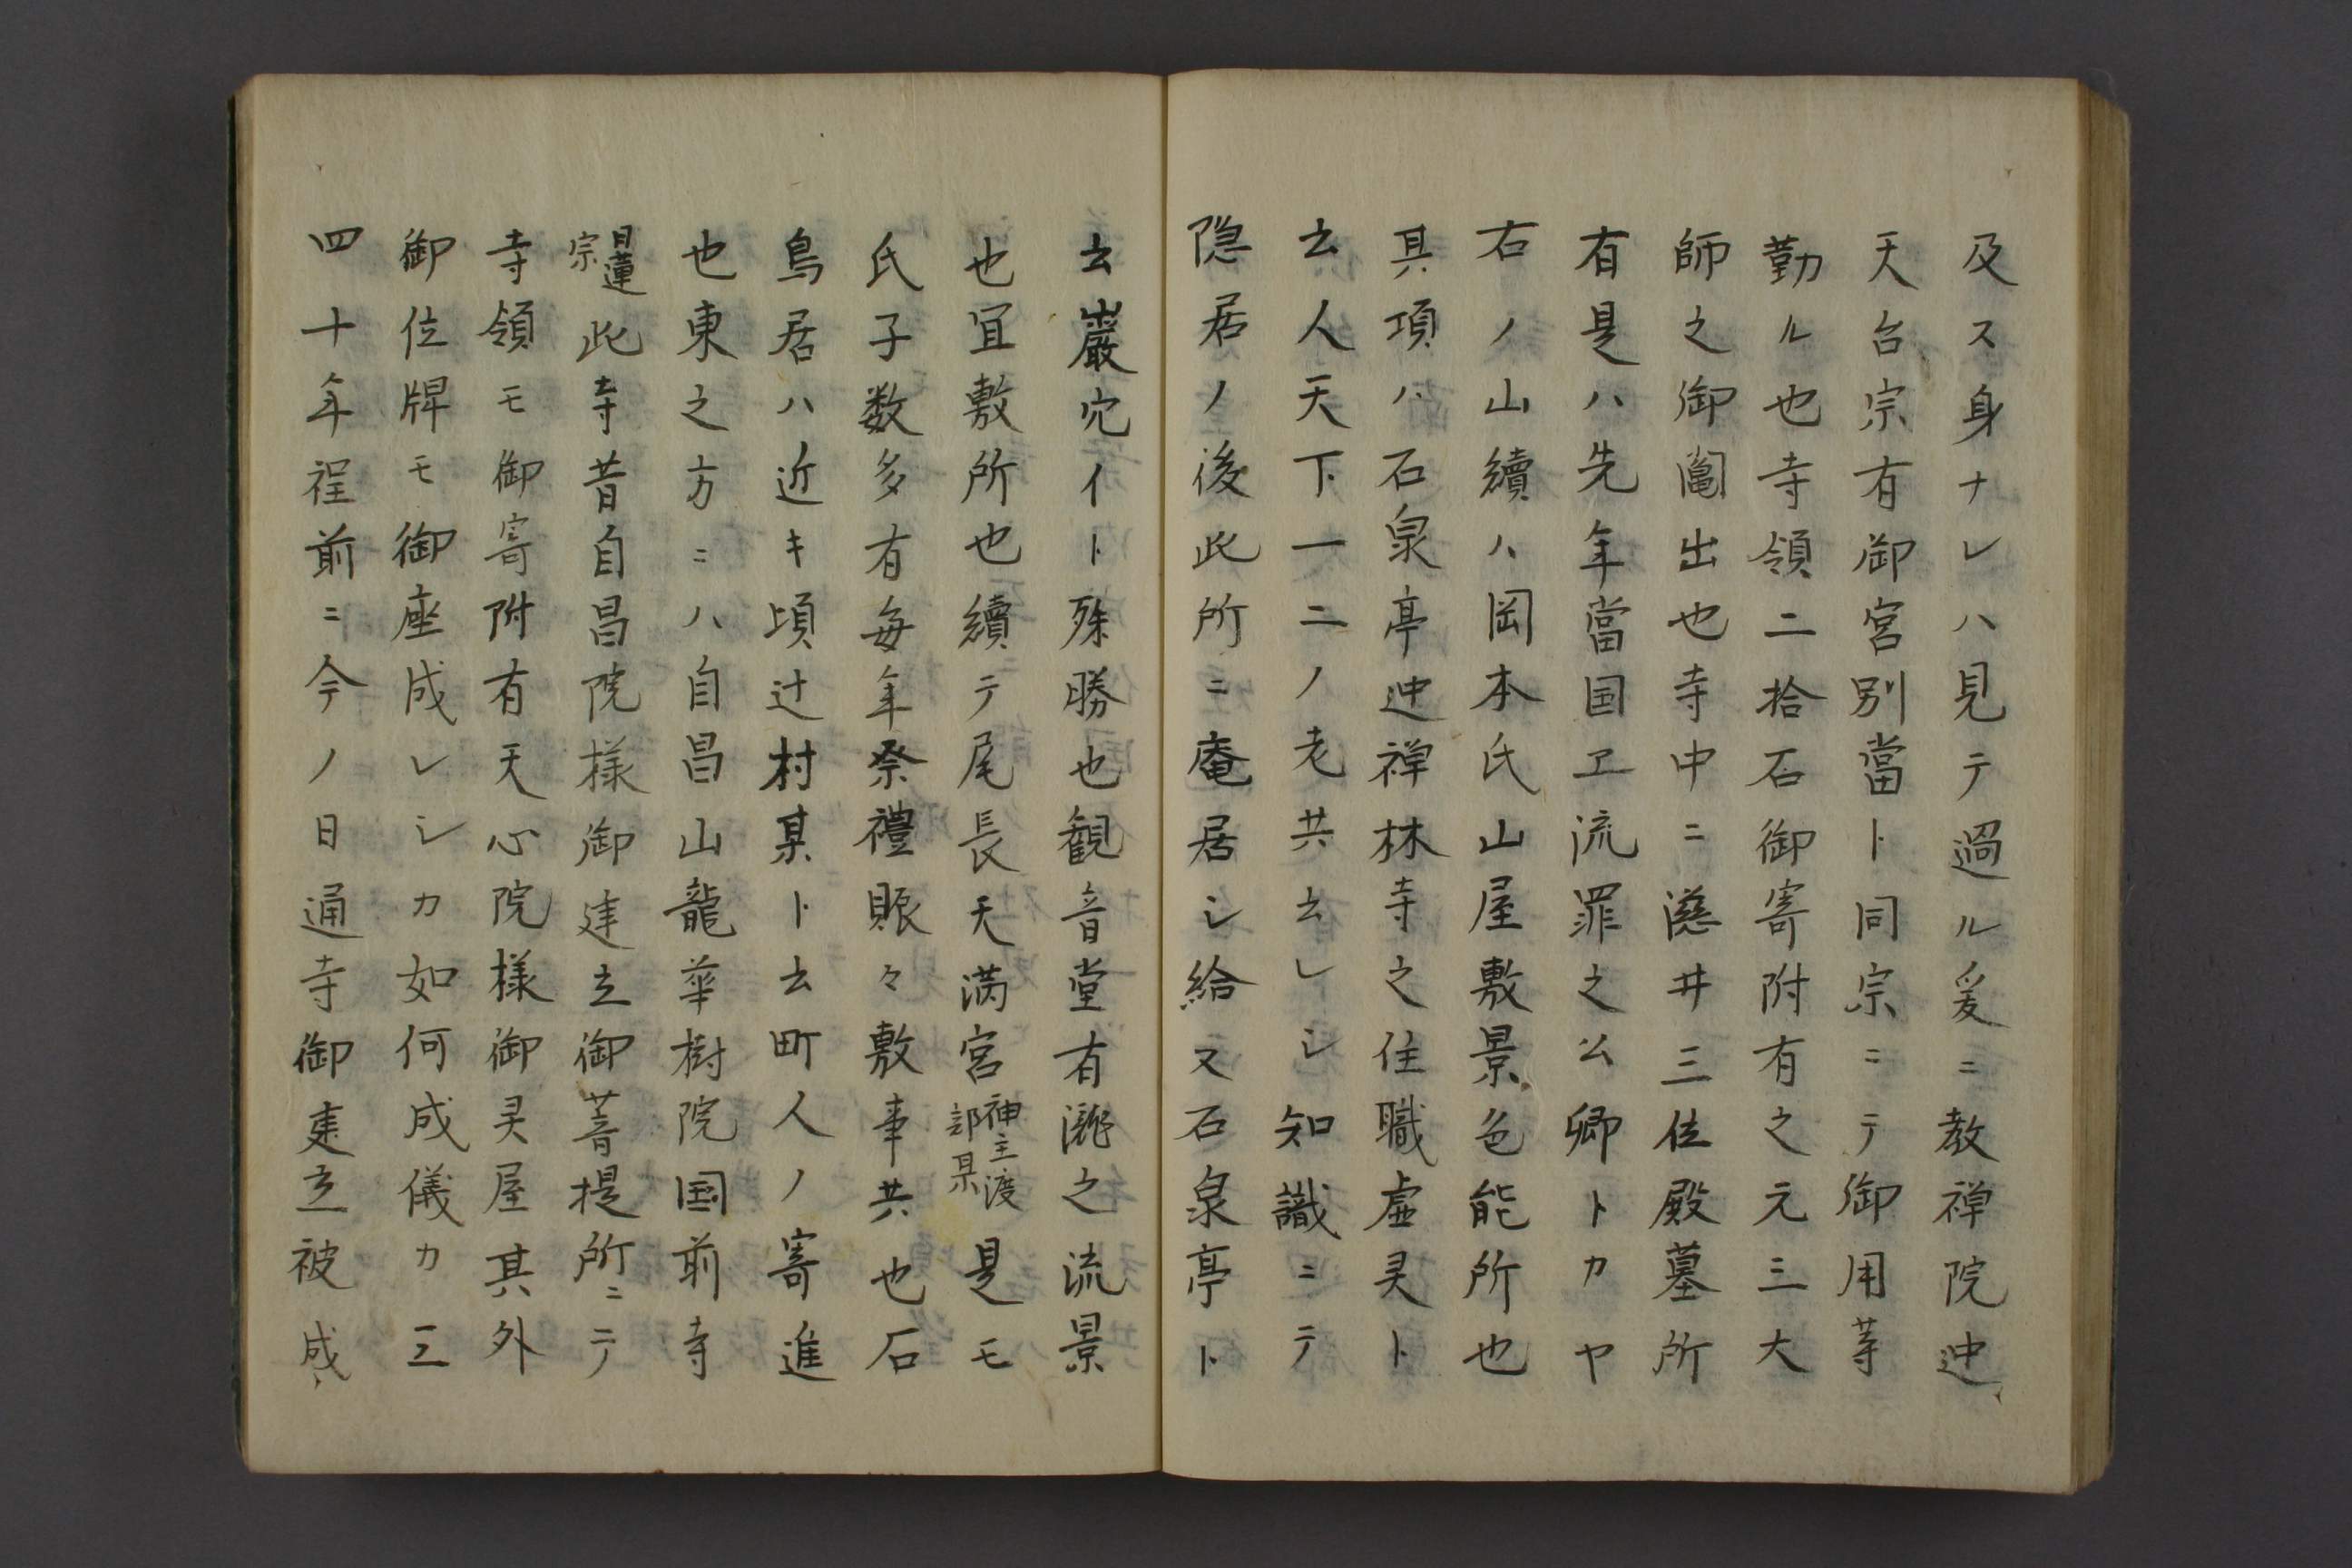 及ス身ナレハ見テ過ル爰ニ教禅院迚
天台宗有御宮別當ト同宗ニテ御用等
勤ル也寺領二拾石御寄附有之元三大
師之御鬮出也寺中ニ 井三位殿墓所
有是ハ先年當国エ流罪之公卿トカヤ
右ノ山續ハ岡本氏山屋敷景色能所也
其項ハ石泉亭迚禅林寺之住職虚灵ト
云人天下一二ノ老共云レシ知識ニテ
隠居ノ後此所ニ庵居シ給又石泉亭ト
云巖穴イト殊勝也観音堂有瀧之流景
也宜敷所也續テ尾長天満宮神主渡部某是モ
氏子数多有毎年祭禮賑々敷事共也石
鳥居ハ近キ頃辻村某ト云町人ノ寄進
也東之方ニハ自昌山龍華樹院国前寺
日蓮宗此寺昔自昌院様御建立御菩提所ニテ
寺領モ御寄附有天心院様御灵屋其外
御位牌モ御座成レシカ如何成儀カ三
四十年程前ニ今ノ日通寺御建立被成